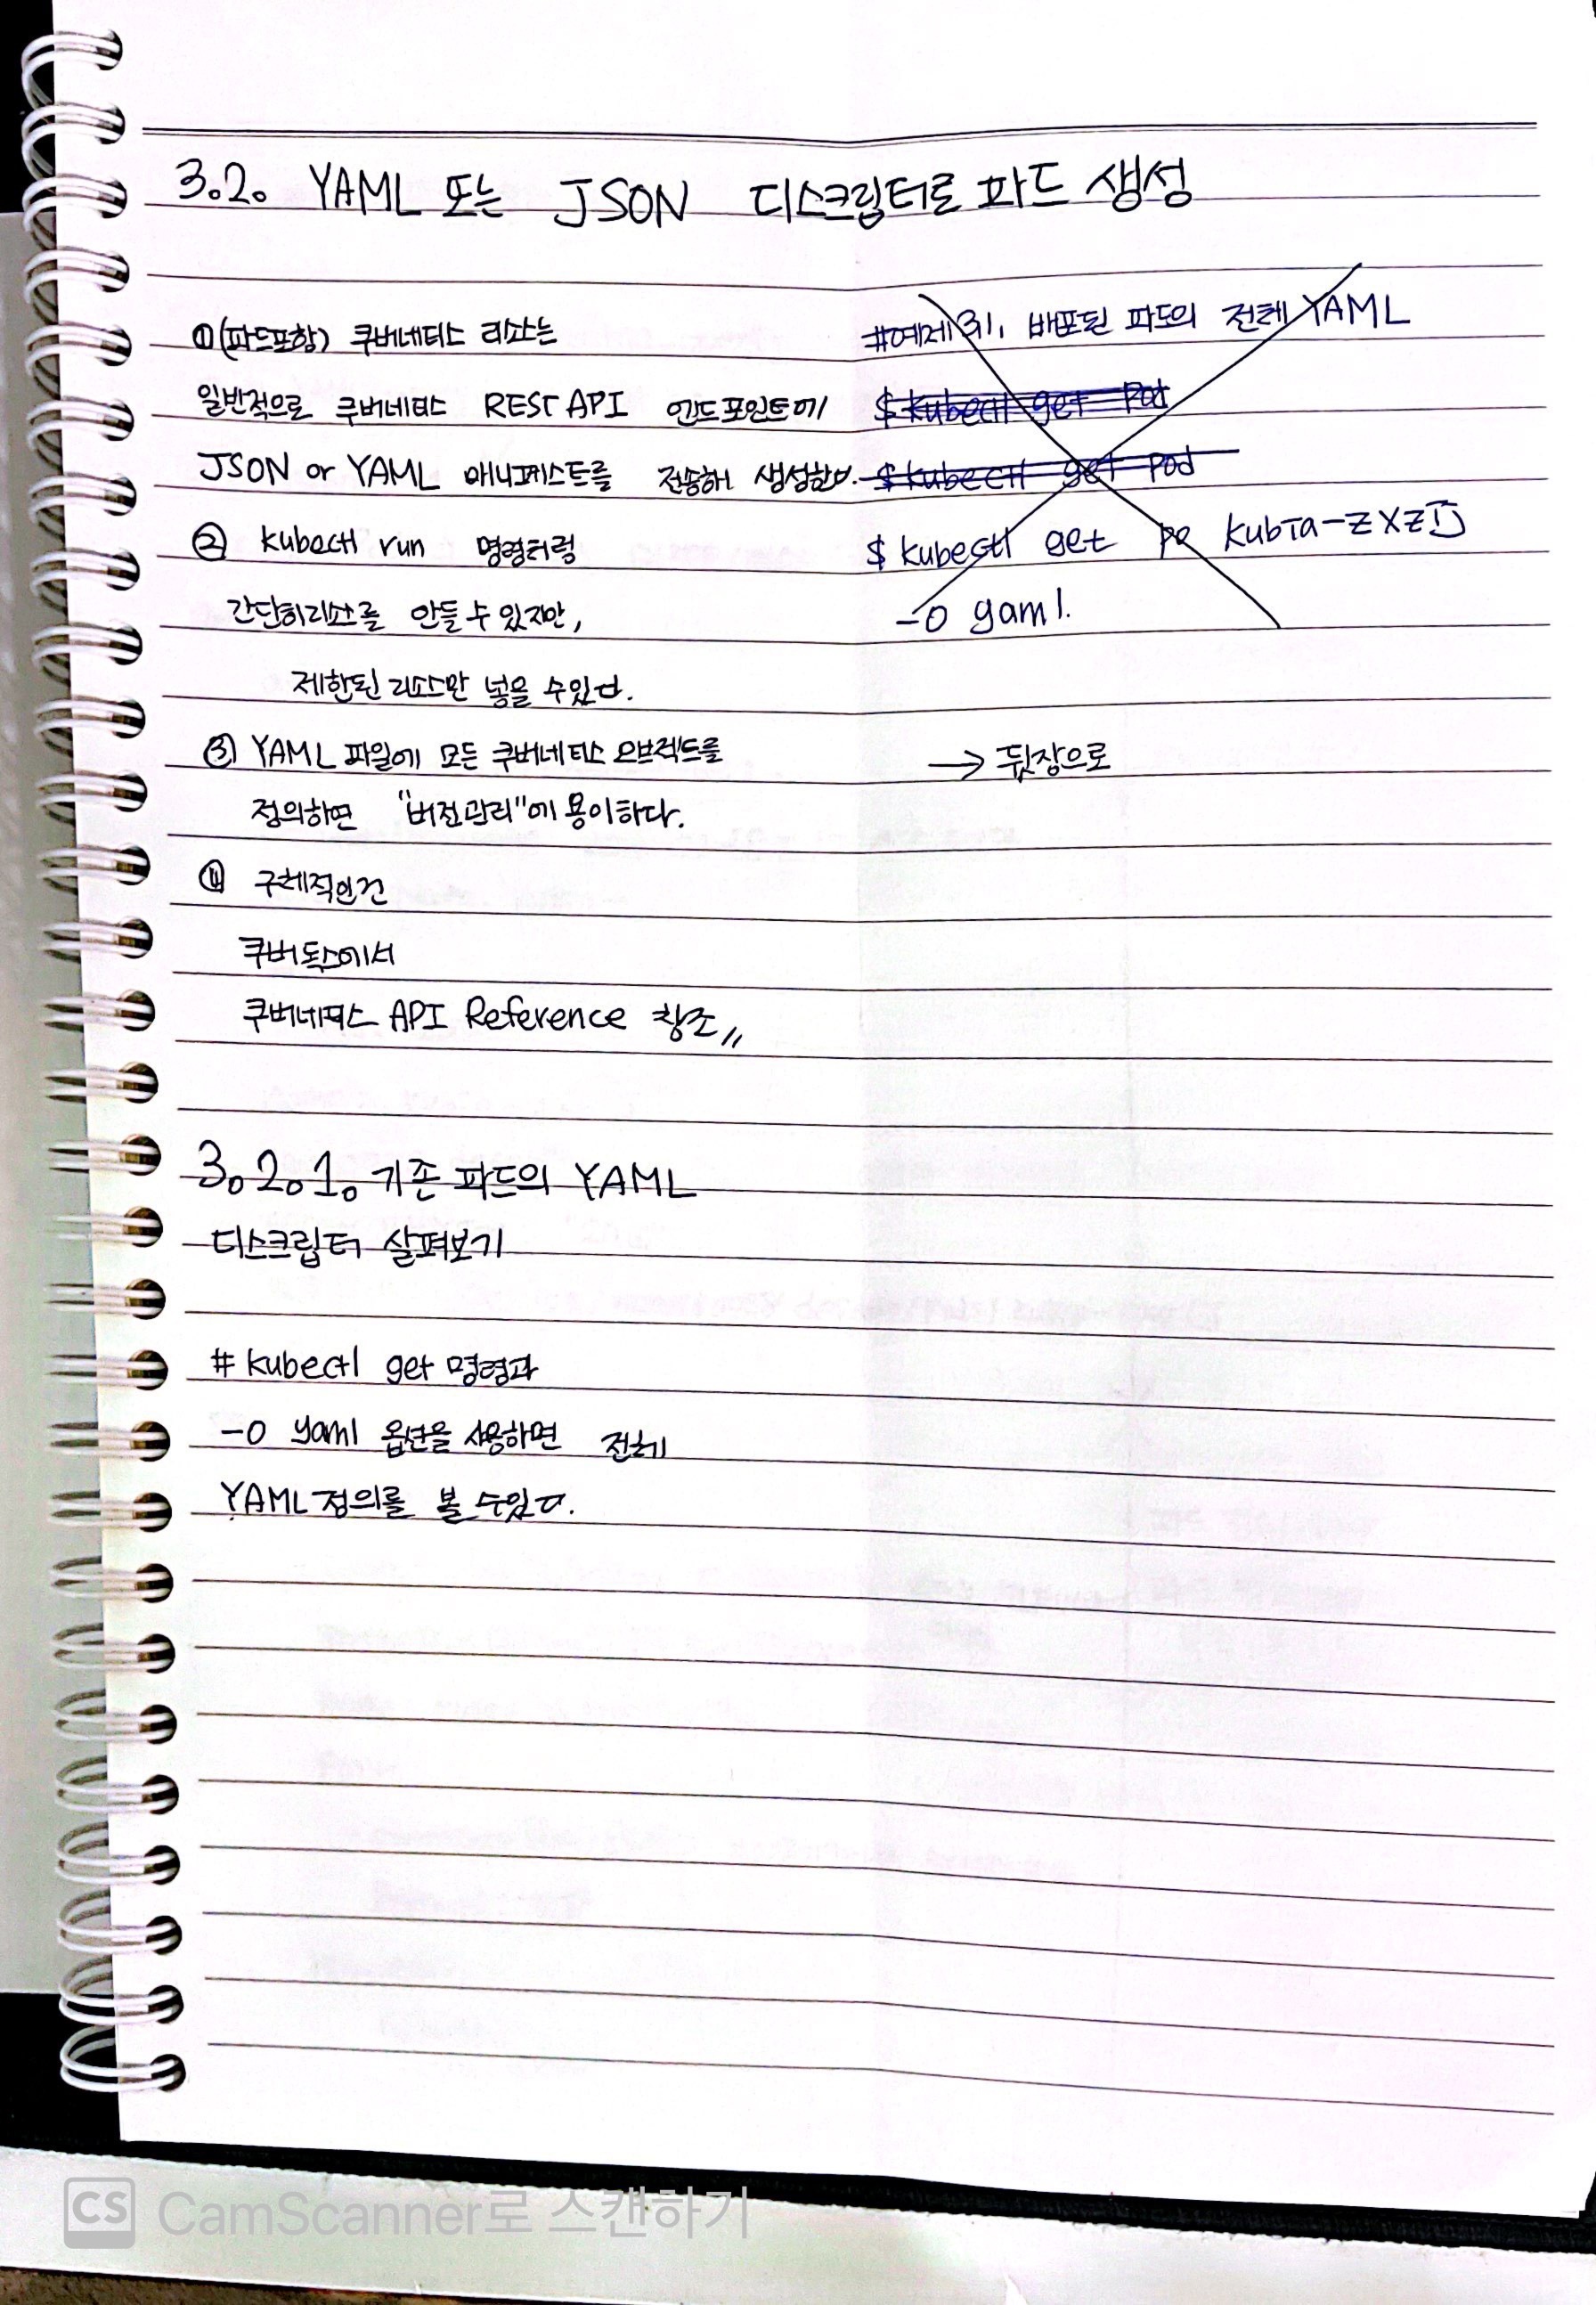 3.2. YAML 또는 JSON 디스크립터로 파드 생성
①(파드포함) 쿠버네티스 리소스는
일반적으로 쿠버네티스 REST API 엔드포인트에
JSON or YAML 매니페스트를 전송해 생성한다.
② kubectl run 명령처럼
간단히 리소스를 만들 수 있지만,
제한된 리소스만 넣을 수 있다.
③ YAML 파일에 모든 쿠버네티스 오브젝트를
정의하면 "버전관리"에 용이하다.
④ 구체적인건
쿠버 독스에서
쿠버네티스 API Reference 참조〃
3.2.1. 기존 파드의 YAML
디스크립터 살펴보기
# kubectl get 명령과
-o yaml 옵션을 사용하면 전체
YAML 정의를 볼 수 있다.
#예제 3.1. 배포된 파드의 전체 YAML
$ kubectl get pod
$ kubectl get pod
$ kubectl get po
-o yaml.
→ 뒷장으로
CS CamScanner로 스캔하기